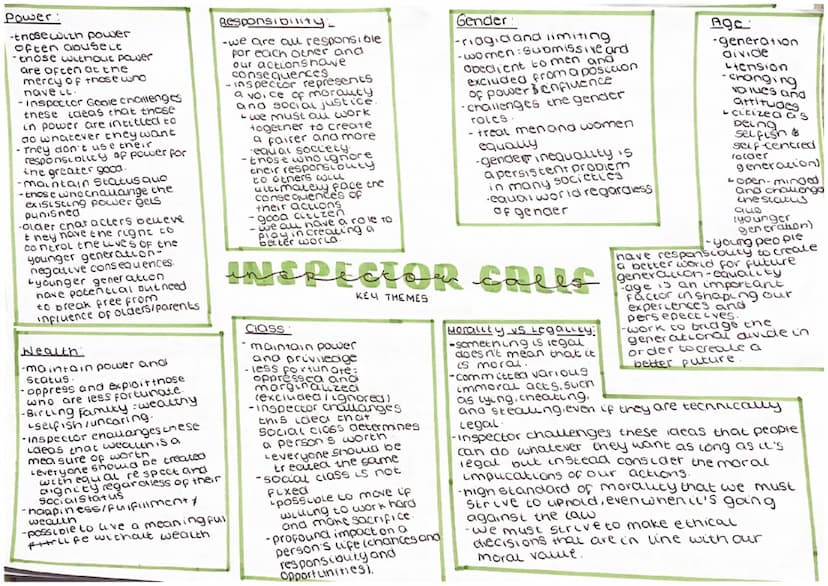 Power:
-those with power
often abuse it
-those without power
are often at the
mercy of those who
have it.
-Inspector Goole challenges
these ideas that those
in power are intitled to
do whatever they want
-They don't use their
responsibility of power for
the greater good.
-maintain status quo
-those who challange the
exisisting power gets
punished
-older characters believe
they have the right to
control the lives of the
younger generation-
negative consequences.
↳younger generation
have potential but need
to break free from
influence of olders/parents
Responsibility:
-we are all responsible
for each other and
our actions have
consequences
-inspector represents
a voice of morality
and social justice.
↳we must all work
together to create
a fairer and more
equal society.
-those who ignore
their responsibility
to others will
ultimately face the
consequences of
their actions
-good citizen
-we all have a role to
play increating a
better world.
Gender:
-ridgid and limiting
-women: submissive and
obedient to men and
excluded from a position
of power & enfluence
-challenges the gender
roles.
-treat men and women
equally
-gender inequality is
a persistent problem
in many societies
-equal world regardless
of gender
Age:
-generation
divide
↳tension
-changing
values and
attitudes
↳citized as
being
selfish &
self-centred
(older
generation)
↳open-minded
and challeng
the status
quo
(younger
generation)
-young people
have responsibility to create
a better world for future
generation-equality
-age is an important
factor in shaping our
experiences and
persepectives.
-work to bridge the
generational divide in
order to create a
better future.
INSPECTOR CALLS
inspector calls
KEY THEMES
Wealth:
-maintain power and
status.
-oppress and exploit those
who are less fortunate.
-Birling Family: wealthy
↳selfish/uncaring.
-inspector challanges these
ideas that wealth is a
measure of worth
↳everyone should be treated
with equal respect and
dignity regardless of their
social status
-happiness/fulfillment ≠
wealth
-possible to live a meaningful
life without wealth
Class:
- maintain power
and priviledge
-less fortunate:
oppressed and
marginalized
(excluded/ignored)
-inspector challanges
this idea that
social class determines
a person's worth
↳everyone should be
treated the same
-social class is not
fixed
↳possible to move if
willing to work hard
and make sacrifice.
-profound impact on a
person's life (chances and
responsibility and
opportunities).
Morality vs Legality:
-something is legal
doesn't mean that it
is moral.
-committed various
immoral acts, such
as lying, cheating,
and stealing, even if they are technically
legal.
-Inspector challenges these ideas that people
can do whatever they want as long as it's
legal but instead consider the moral
implications of our actions.
-high standard of morality that we must
strive to uphold, even when it's going
against the law
-we must strive to make ethical
decisions that are in line with our
moral value.